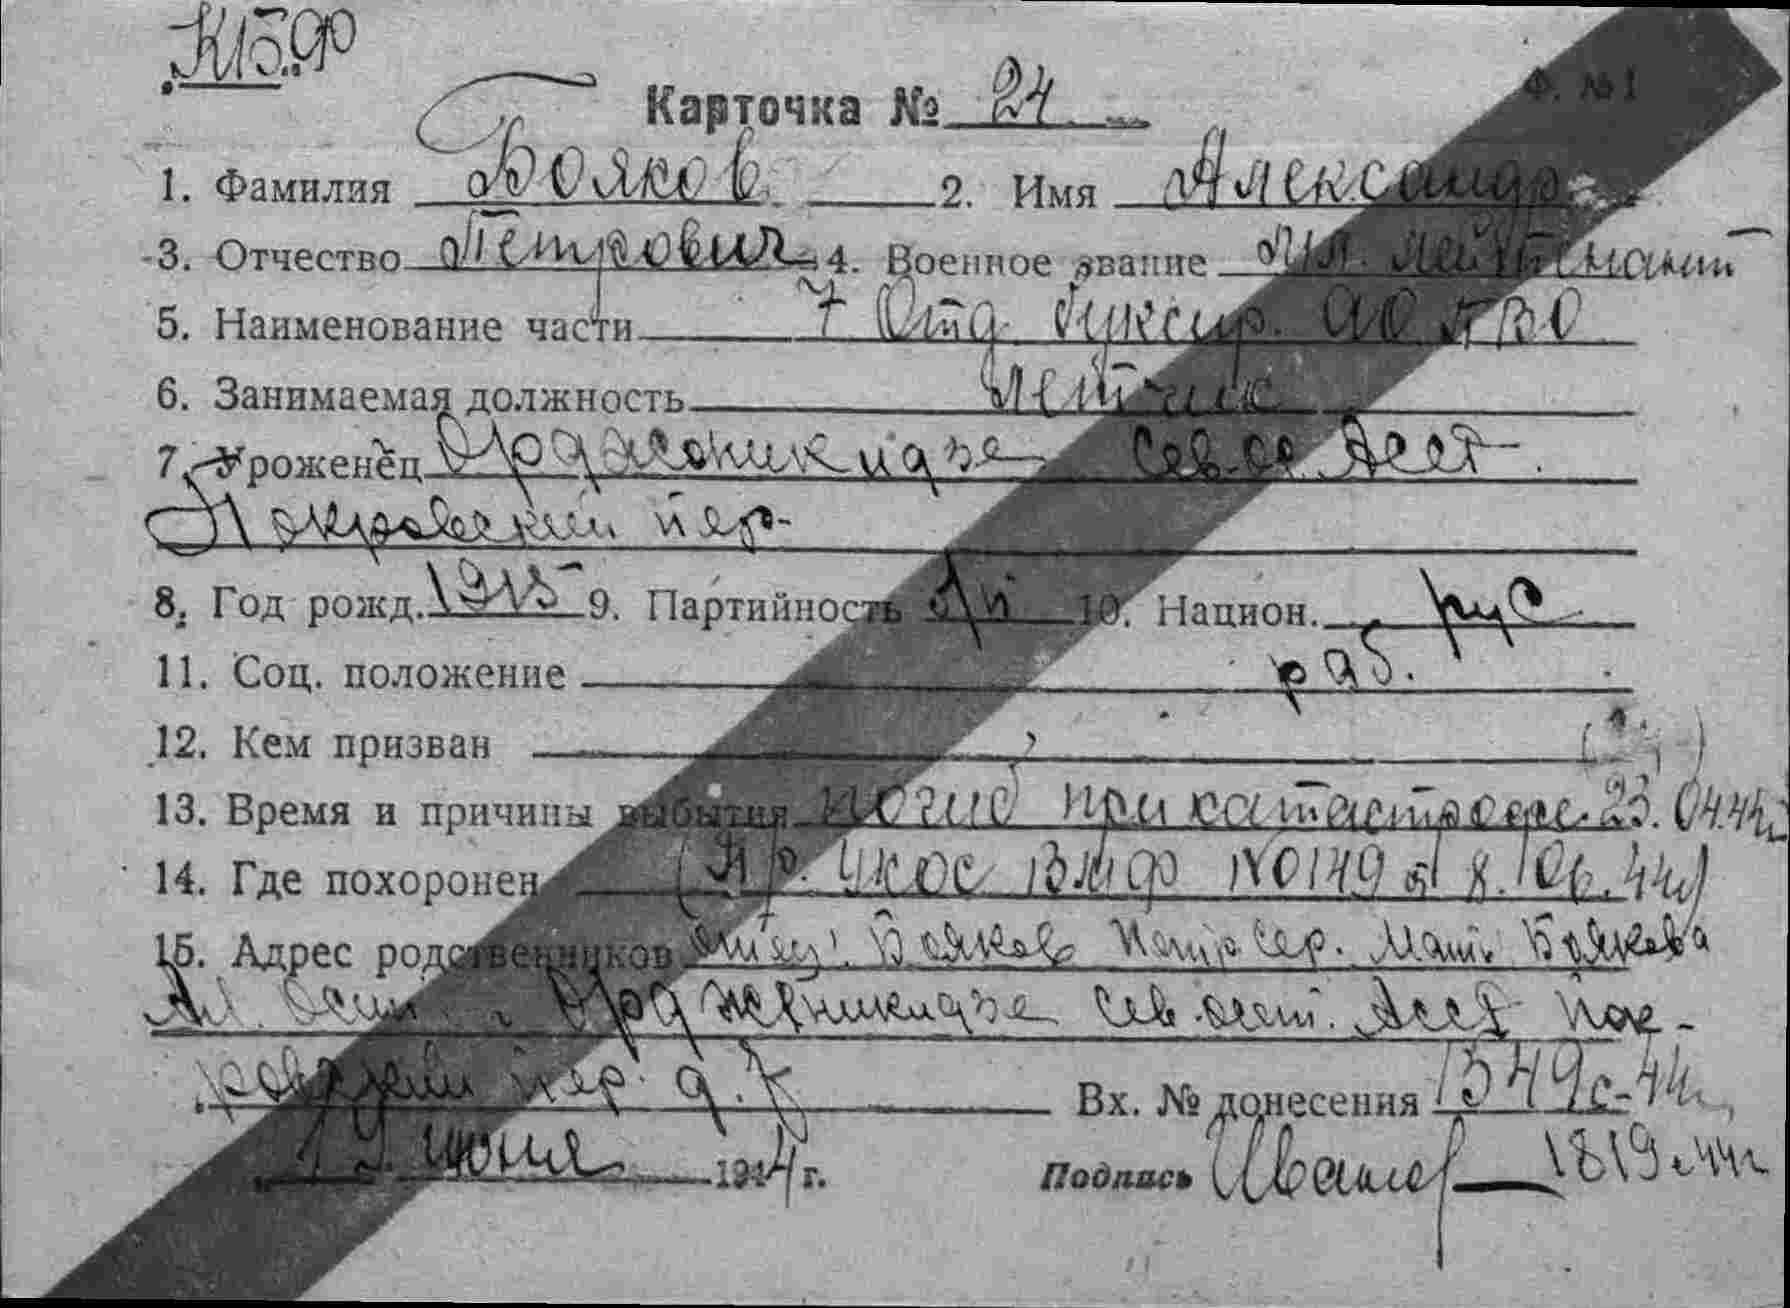 КБФ
Ф. № 1
Карточка № 24
1. Фамилия Бояков 2. Имя Александр
3. Отчество Петрович 4. Военное звание Мл. лейтенант
5. Наименование части 7 Отд. буксир. АО ПВО
6. Занимаемая должность Летчик
7. Уроженец Орджоникидзе Сев. Ос. АССР.
Покровский пер-
8. Год рожд. 1915 9. Партийность 10. Национ. рус
11. Соц. положение раб.
12. Кем призван
13. Время и причины выбытия погиб при катастрофе 23.04.44г
14. Где похоронен (Пр. УКОС ВМФ № 0149 от 8.06.44г)
15. Адрес родственников отец: Бояков Петр Сер. Мать Боякова
Ал. Осип. Орджоникидзе Сев. осет. АССР Пок-
ровский пер. д. 7 Вх. № донесения 1349с-44г
19 июня 1944 г. Подпись 1819с.44г